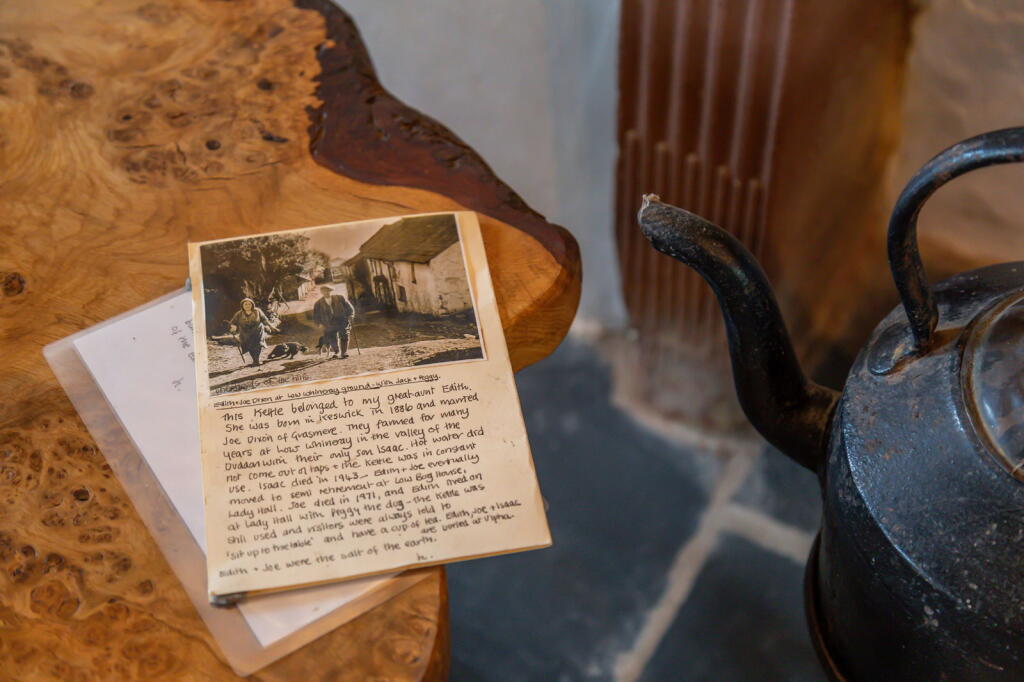 of the hills
Edith + Joe Dixon at Low Whineray ground - with Jack + Peggy.
This Kettle belonged to my great-aunt Edith.
She was born in Keswick in 1886 and married
Joe Dixon of Grasmere. They farmed for many
years at Low Whineray in the valley of the
Duddon with their only son Isaac. Hot water did
not come out of taps + the Kettle was in constant
use. Isaac died in 1943 - Edith + Joe eventually
moved to semi retirement at Low Bog House,
Lady Hall. Joe died in 1971, and Edith lived on
at Lady Hall with Peggy the dog - the Kettle was
still used and visitors were always told to
'sit up to the table' and have a cup of tea. Edith, Joe + Isaac
are buried at Ulpha.
Edith + Joe were the salt of the earth.
h.
of the
h